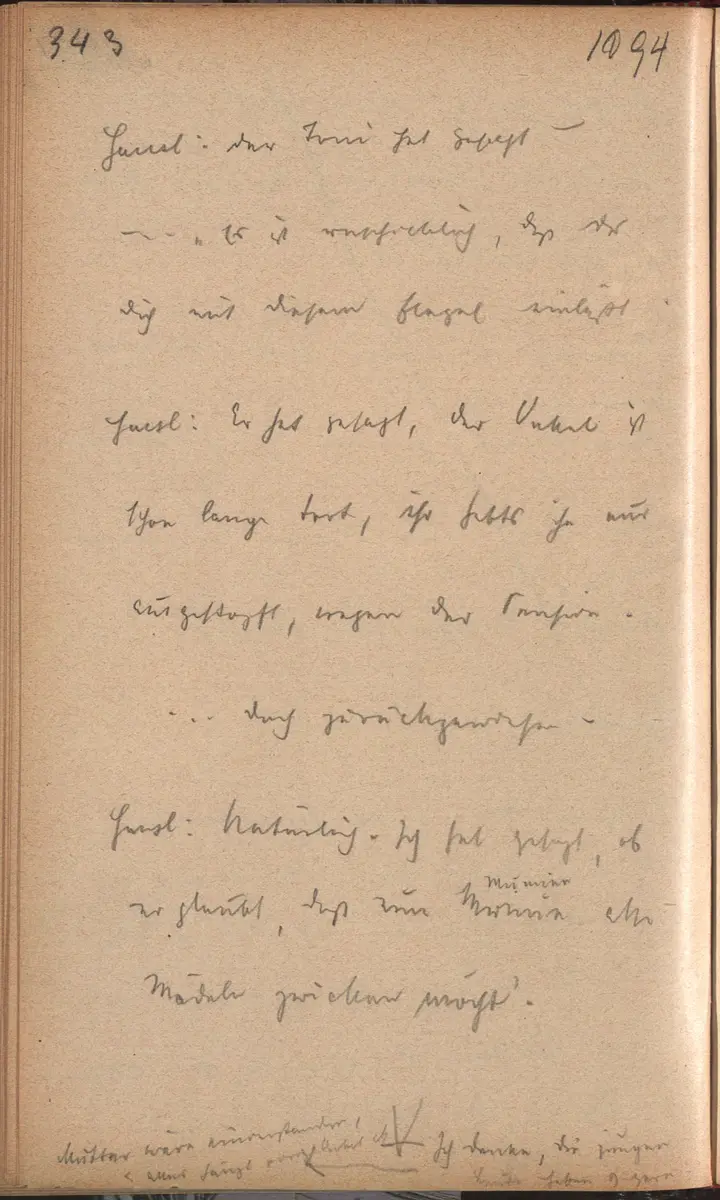 343 1094
Hansl: der Toni hat gesagt –
– - - „Es ist unschicklich, daß du
dich mit diesem Flegel einläßt
Hansl: Er hat gesagt, der Onkel ist
schon lange tot, ihr habts ihn nur
ausgestopft, wegen der Pension.
... doch zurückgewiesen –
Hansl: Natürlich. Ich hab gesagt, ob
er glaubt, daß eine
Mumie
alle
Mädeln zwicken möcht'.
Mutter wäre einverstanden,
Ich denke, die jungen
Leute haben gern